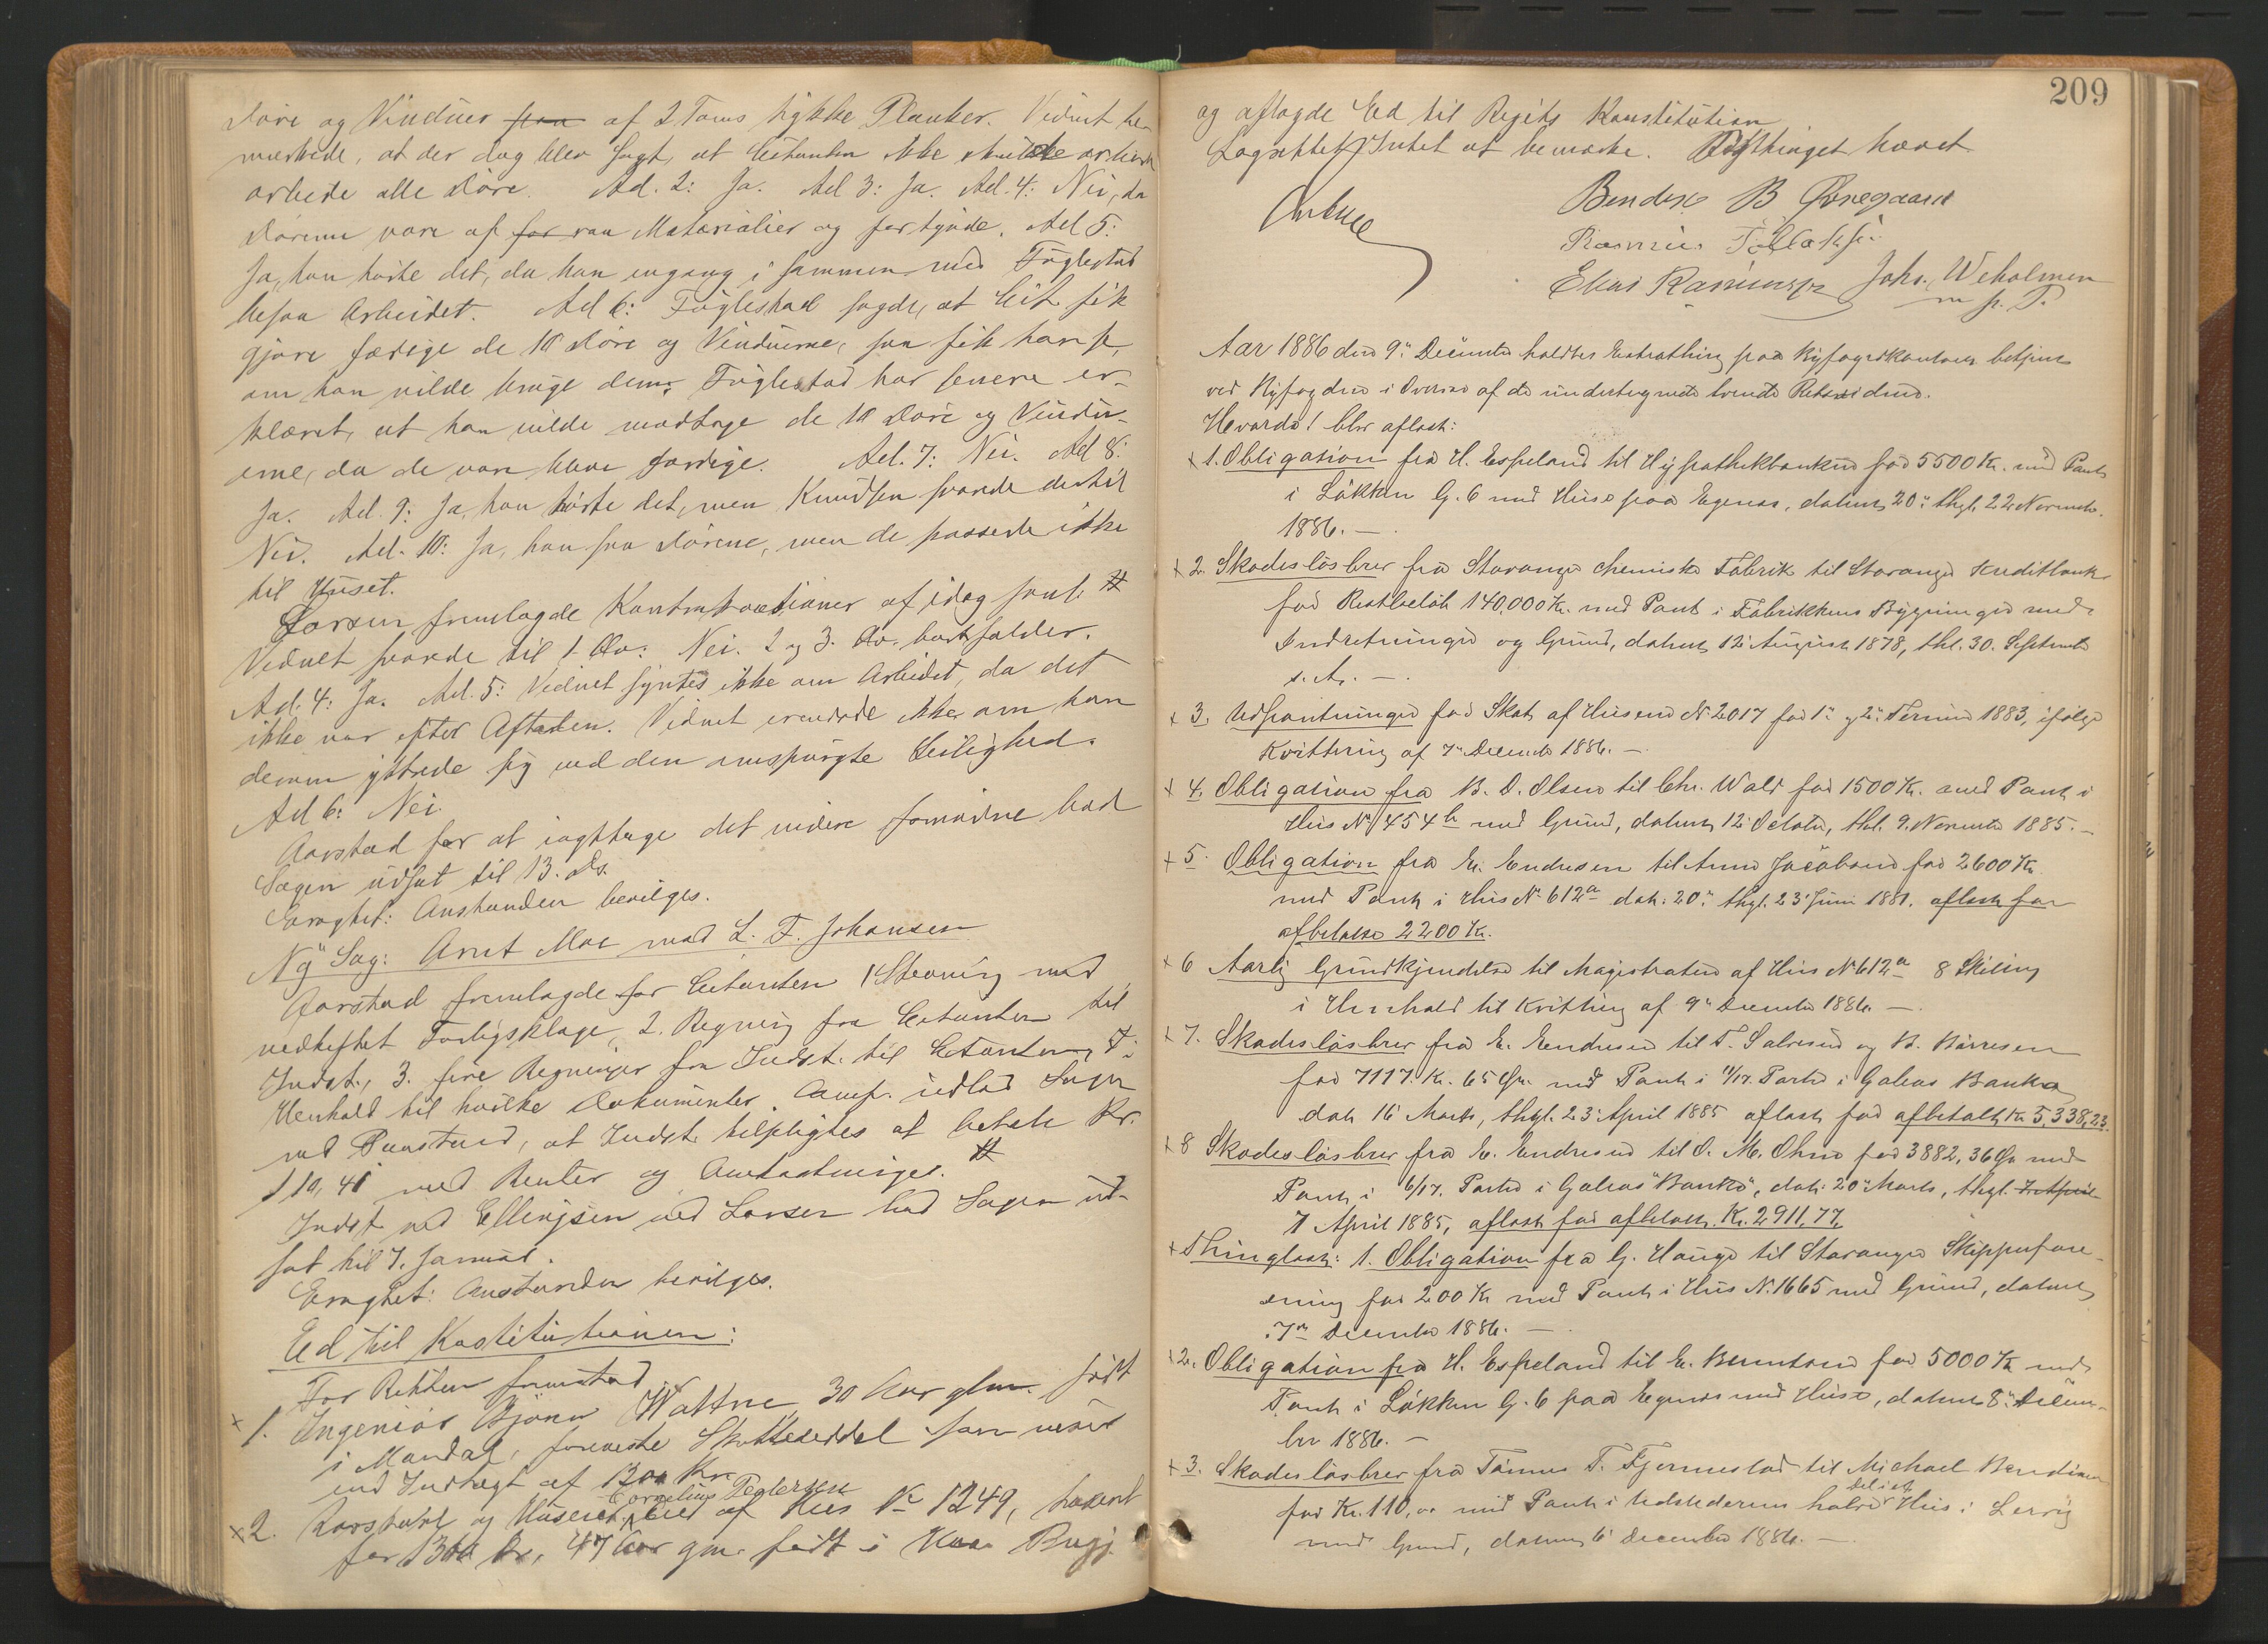 Døre og Vinduer af 2 Toms tykke Planker. Vidnet be-
mærkede, at der dog blev sagt, at Citanten ikke skulde
arbeide alle Døre. Ad. 2: Ja. Ad 3: Ja. Ad. 4: Nei, da
Dørene vare af raa Materialier og for tynde. Ad 5:
Ja, han hørte det, da han engang i sammen med Fuglestad
besaa Arbeidet. Ad 6: Fuglestad sagde, at Cit. fik
gjøre færdige de 10 Døre og Vinduerne, saa fik han se,
om han vilde bruge dem; Fuglestad har senere er-
klæret, at han vilde modtage de 10 Døre og Vindu-
erne, da de vare færdige. Ad. 7: Nei. Ad 8:
Ja. Ad. 9: Ja, han hørte det, men Knudsen svarede dertil
Nei. Ad. 10: Ja, han saa Dørene, men de passede ikke
til Huset.
Larsen fremlagde af idag saal. #
Vidnet svarede til 1 Qv: Nei. 2 og 3. Qv. bortfalder.
Ad. 4: Ja. Ad. 5: Vidnet syntes ikke om Arbeidet, da det
ikke var efter Aftalen. Vidnet erindrede ikke, om han
derom yttrede sig ved den omspurgte Leilighed.
Ad 6: Nei.
Aarstad for at iagttage det videre fornødne bad
Sagen udsat til 13. Ds.
Eragtet: Anstanden bevilges.
Ny Sag: Arnt Moe mod L. F. Johansen
Aarstad fremlagde for Citanten 1 Stevning med
vedheftet Forligsklage, 2. Regning fra Citanten til
Indst., 3. fire Regninger fra Indst. til Citanten. I
Henhold til hvilke Dokumenter Comp. indlod Sagen
med Paastand, at Indst. tilpligtes at betale Kr.
110,41 med Renter og Omkostninger. #
Indst. ved Ellingsen ved Larsen bad Sagen ud-
sat til 7. Januar.
Eragtet: Anstanden bevilges.
Ed til Kostitutionen:
For Retten fremstod
× 1. Ingeniør Bjarne Wattne 30 Aar glm. født
i Mandal, foreviste Skatteseddel som viser
en Indtægt af 1200 Kr.
Cornelius Pedersen
× 2. og Huseier, Eier af Hus No 1249, taxeret
for 1300 Kr, 47 Aar gm. født i
209
og aflagde Ed til Rigets Konstitution
Lagrettet Intet at bemærke. Bythinget hævet
Bendix B Øvregaard
Rasmus Tollaksen
Elias Rasmussen Johs. Weholmen
m. p. P.
Aar 1886 den 9de December holdtes Extrathing paa Byfogedkontoret betjent
ved Byfogden i Overvær af de undertegnede tvende Retsvidner.
Hvorda! blev aflæst:
× 1. Obligation fra H. Espeland til Hypothekbanken for 5500 Kr. med Pant
i Løkken G. 6 med Huse paa Egenæs, dateret 20de thgl. 22 Novembr.
1886. —
× 2. Skadesløsbrev fra Stavanger chemiske Fabrik til Stavanger Kreditbank
for Restbeløb 140,000 Kr. med Pant i Fabrikkens Bygninger med
Indretninger og Grund, dateret 12 August 1878, thl. 30. September
s. A. —
× 3. Udpantninger for Skat af Huset No 2017 for 1ste og 2den Termin 1883, ifølge
Kvittering af 7de December 1886. —
× 4. Obligation fra B. D. Olsen til Chr. Wald for 1500 Kr. med Pant i
Hus No 454b med Grund, dateret 12 October, thl. 9. November 1885. —
× 5. Obligation fra E. Endresen til Anne Jacobsen for 2600 Kr
med Pant i Hus No 612a dat. 20de thgl. 23 Juni 1881. aflæst for
afbetalte 2200 Kr.
× 6 Aarlig Grundkjendelse til Magistraten af Hus No 612a 8 Skilling
i Henhold til Kvittering af 9de December 1886. —
× 7. Skadesløsbrev fra E. Endresen til T. Salvesen og B. Børresen
for 7117 Kr. 65 Øre med Pant i 11/17 Parter i Galeas Banka
dat. 16 Marts, thgl. 23 April 1885 aflæst for afbetalt Kr. 5,338,23.
× 8 Skadesløsbrev fra E. Endresen til O. M. Ohm for 3882, 36 Øre med
Pant i 6/17 Parter i Galeas "Banka", dat. 20de Marts, thgl.
7 April 1885, aflæst for afbetalt Kr. 2911,77.
× Thinglæst: 1. Obligation fra G. Hauge til Stavanger Skipperfore-
ning for 200 Kr med Pant i Hus No. 1665 med Grund, dateret
7de December 1886. —
× 2. Obligation fra H. Espeland til E. Berntsen for 5000 Kr med
Pant i Løkken G. 6 paa Egenæs med Huse, dateret 8de Decem-
ber 1886. —
× 3. Skadesløsbrev fra Tønnes T. Fjermestad til Michael Bendixen
for Kr. 110,00 med Pant i Udstederens halve Del i et Hus i Lervig
med Grund, dateret 6 December 1886. —